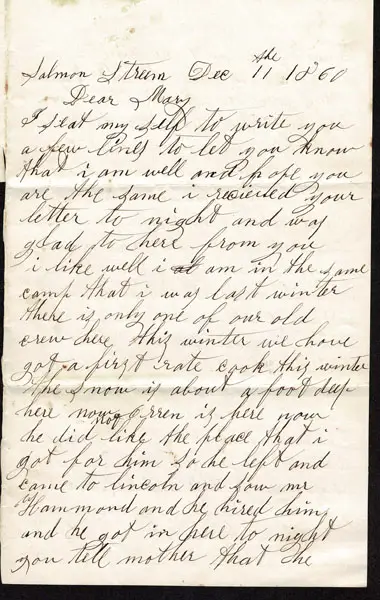 Salmon Streem Dec 11 the 1860
Dear Mary
I seat my self to write you
a few lines to let you know
that i am well and hope you
are the same i recieved your
letter to night and was
glad to here from you
i like well i am in the same
camp that i was last winter
there is only one of our old
crew here this winter we have
got a first rate cook this winter
the snow is about a foot deep
here now Orren is here now
he did not like the place that i
got for him so he left and
came to lincoln and saw mr
Hammond and he hired him
and he got in here to night
you tell mother that the